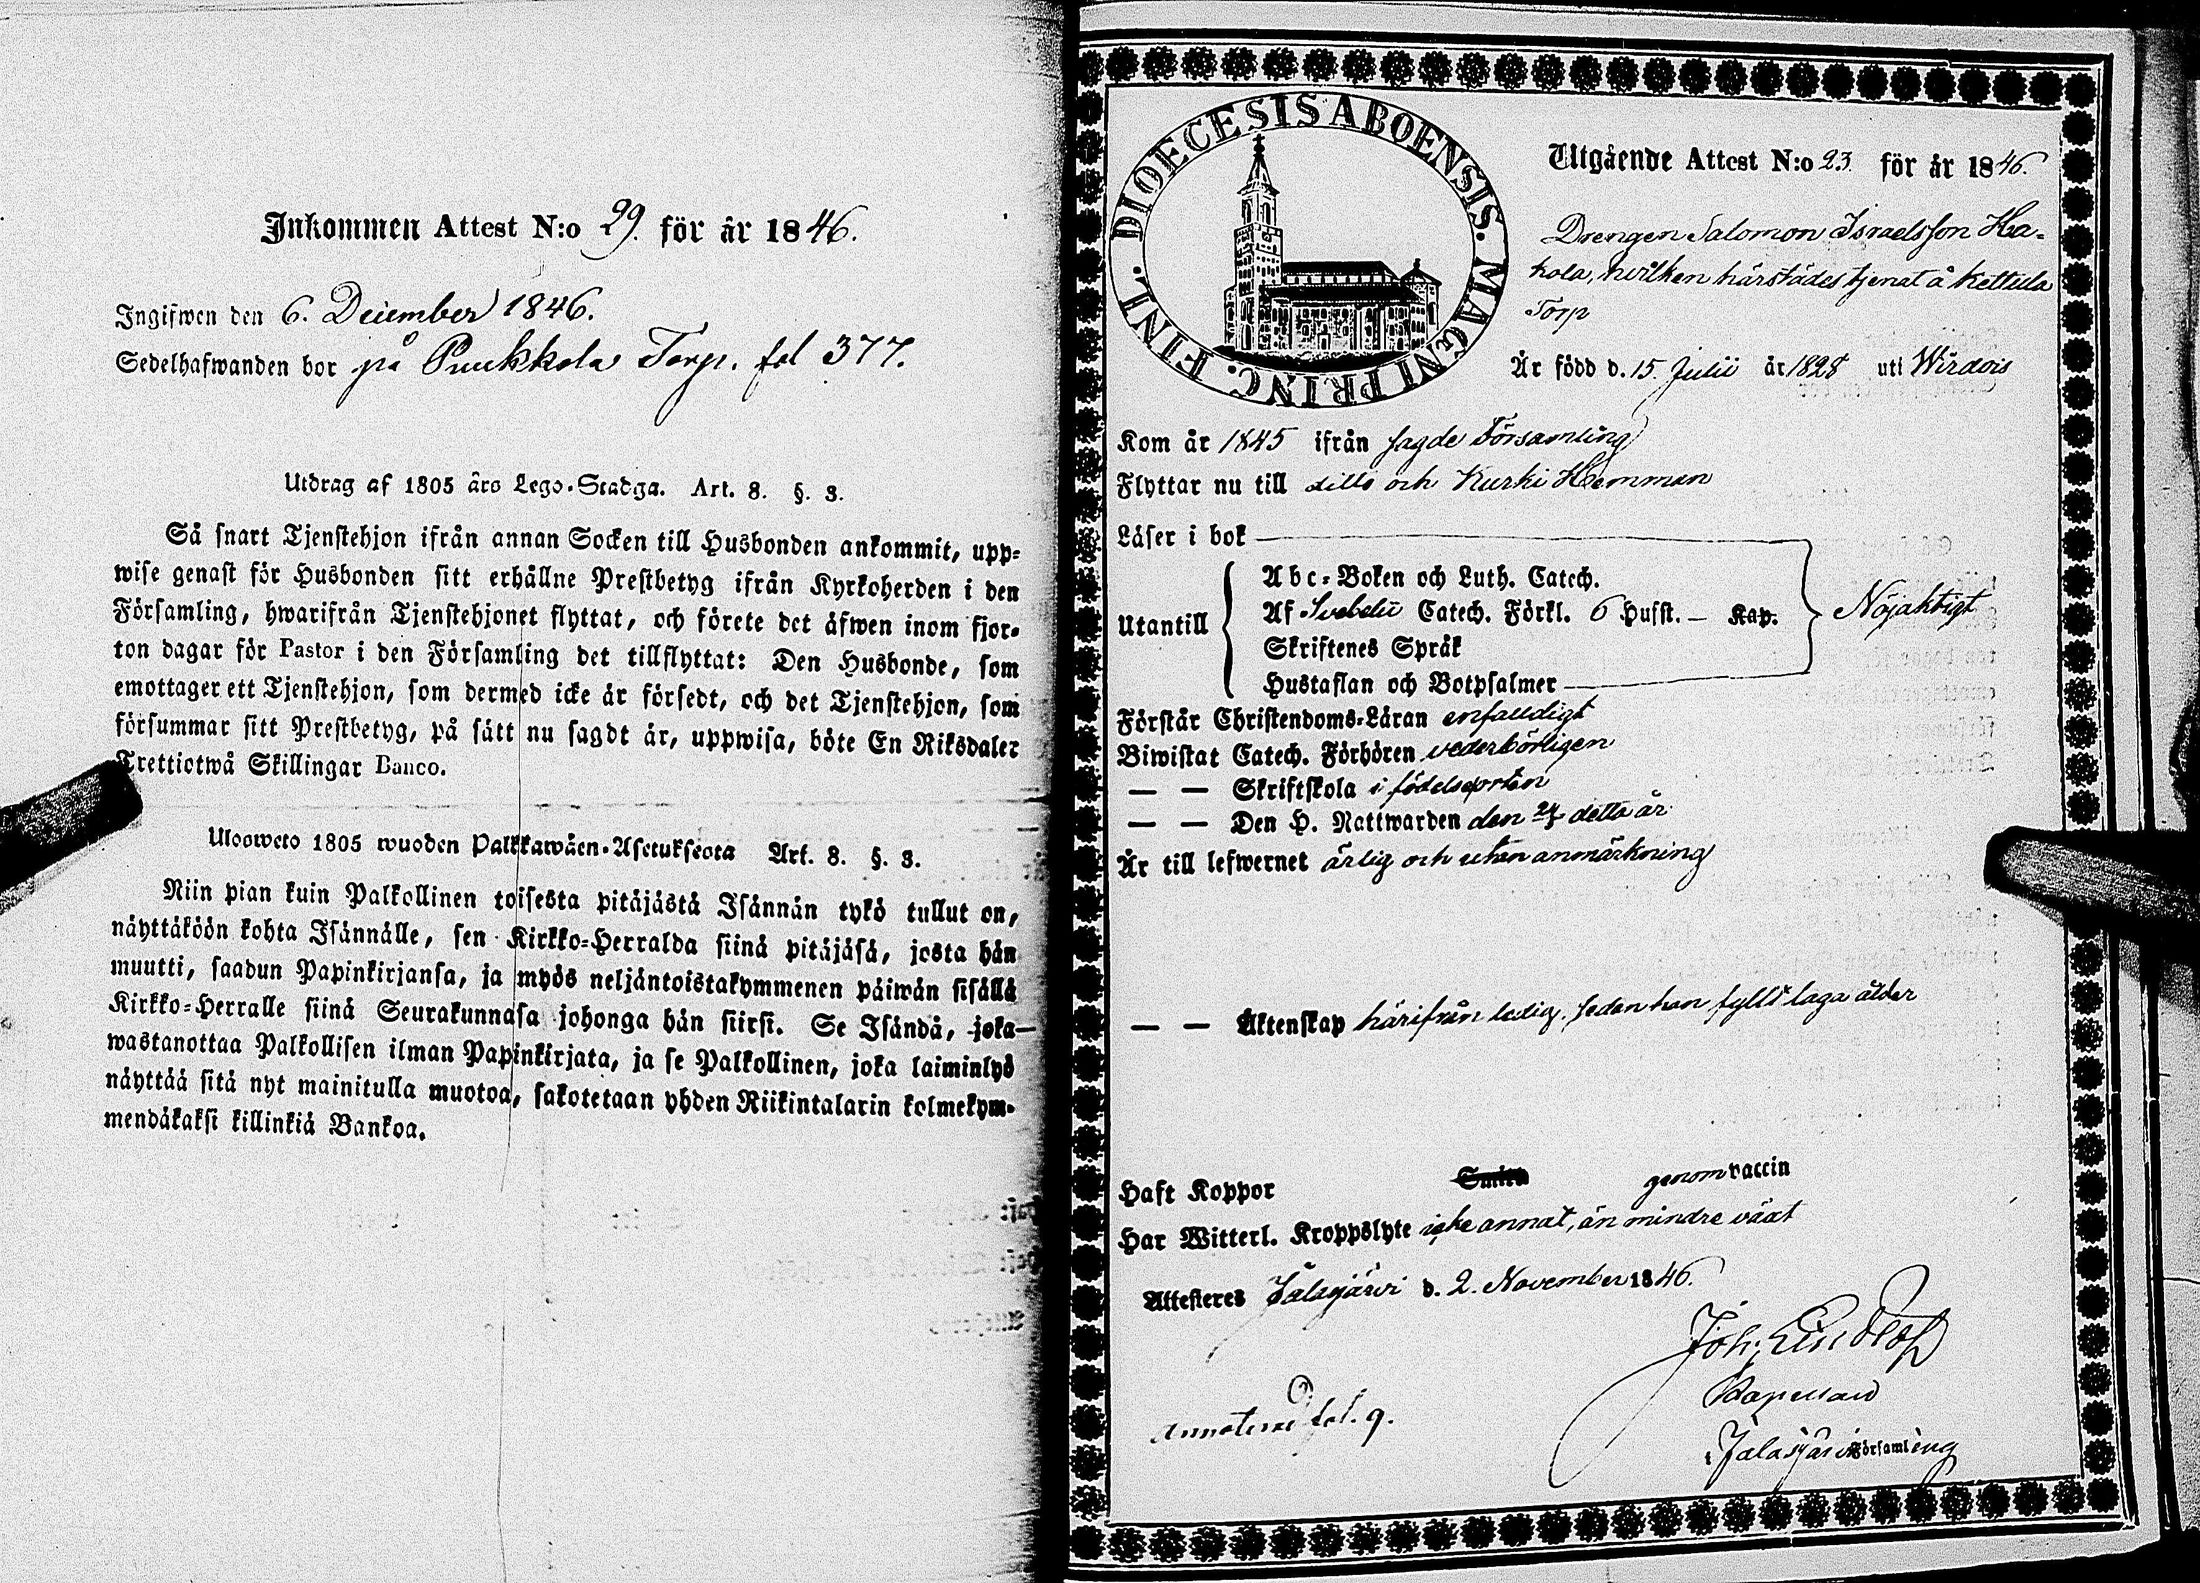 Inkommen Attest N:o 29. för år 1846.
Ingifwen den 6. December 1846.
Sedelhafwanden bor på Puukkola Torp. fol 377.
Utdrag af 1805 års Lego-Stadga. Art. 8. §. 3.
Så snart Tjenstehjon ifrån annan Socken till Husbonden ankommit, upp=
wise genast för Husbonden sitt erhållne Prestbetyg ifrån Kyrkoherden i den
Församling, hwarifrån Tjenstehjonet flyttat, och förete det äfwen inom fjor=
ton dagar för Pastor i den Församling det tillflyttat: Den Husbonde, som
emottager ett Tjenstehjon, som dermed icke är försedt, och det Tjenstehjon, som
försummar sitt Prestbetyg, på sätt nu sagdt är, uppwisa, böte En Riksdaler
Trettiotwå Skillingar Banco.
Ulosweto 1805 wuoden Palkkawäen-Asetuksesta Art. 8. §. 3.
Niin pian kuin Palkollinen toisesta pitäjästä Isännän tykö tullut on,
näyttäköön kohta Isännälle, sen Kirkko=Herralda siinä pitäjäsä, josta hän
muutti, saadun Papinkirjansa, ja myös neljäntoistakymmenen päiwän sisällä
Kirkko=Herralle siinä Seurakunnasa johonga hän siirsi. Se Isändä, joka
wastanottaa Palkollisen ilman Papinkirjata, ja se Palkollinen, joka laiminlyö
näyttää sitä nyt mainitulla muotoa, sakotetaan yhden Riikintalarin kolmekym=
mendäkaksi killinkiä Bankoa.
DIOECESIS ABOENSIS. MAGNI PRINC. FINL.
Utgående Attest N:o 23. för år 1846.
Drengen Salomon Israelsson Ha=
kola, hvilken härstädes tjenat å Kettula
Torp
Är född d. 15. Julii år 1828 uti Wirdois
Kom år 1845 ifrån sagde Församling
Flyttar nu till dito och Kurki Hemman
Läser i bok
Utantill
Abc=Boken och Luth. Catech.
Af Svebelii Catech. Förkl. 6 Hufst. — Kap.
Skriftenes Språk
Hustaflan och Botpsalmer
Nöjaktigt
Förstår Christendoms=Läran enfaldigt
Biwistat Catech. Förhören vederbörligen
— — Skriftskola i födelseorten
— — Den H. Nattwarden den detta år
Är till lefwernet ärlig och utan anmärkning
— — Äktenskap härifrån ledig, sedan han fyllt laga ålder
Haft Koppor Smitt genom vaccin
Har Witterl. Kroppslyte icke annat, än mindre växt
Attesteres Jalasjärvi d. 2. November 1846.
Joh.
Kapellan
i Jalasjärvi Församling
fol. 9.